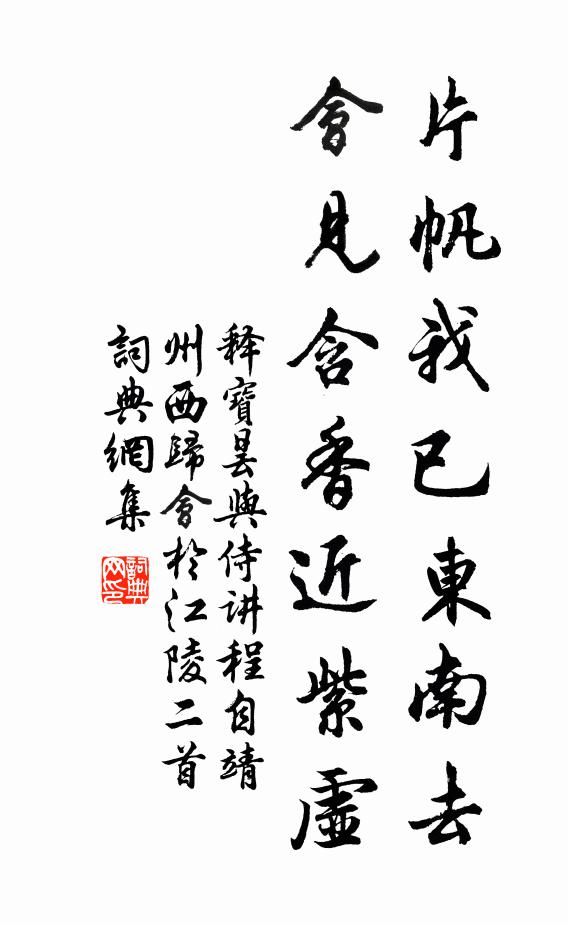 片帆我已東南去
會見含香近紫虛
释寶曇與侍讲程自靖
州西歸會於江陵二首
詞典網集
詞典网印